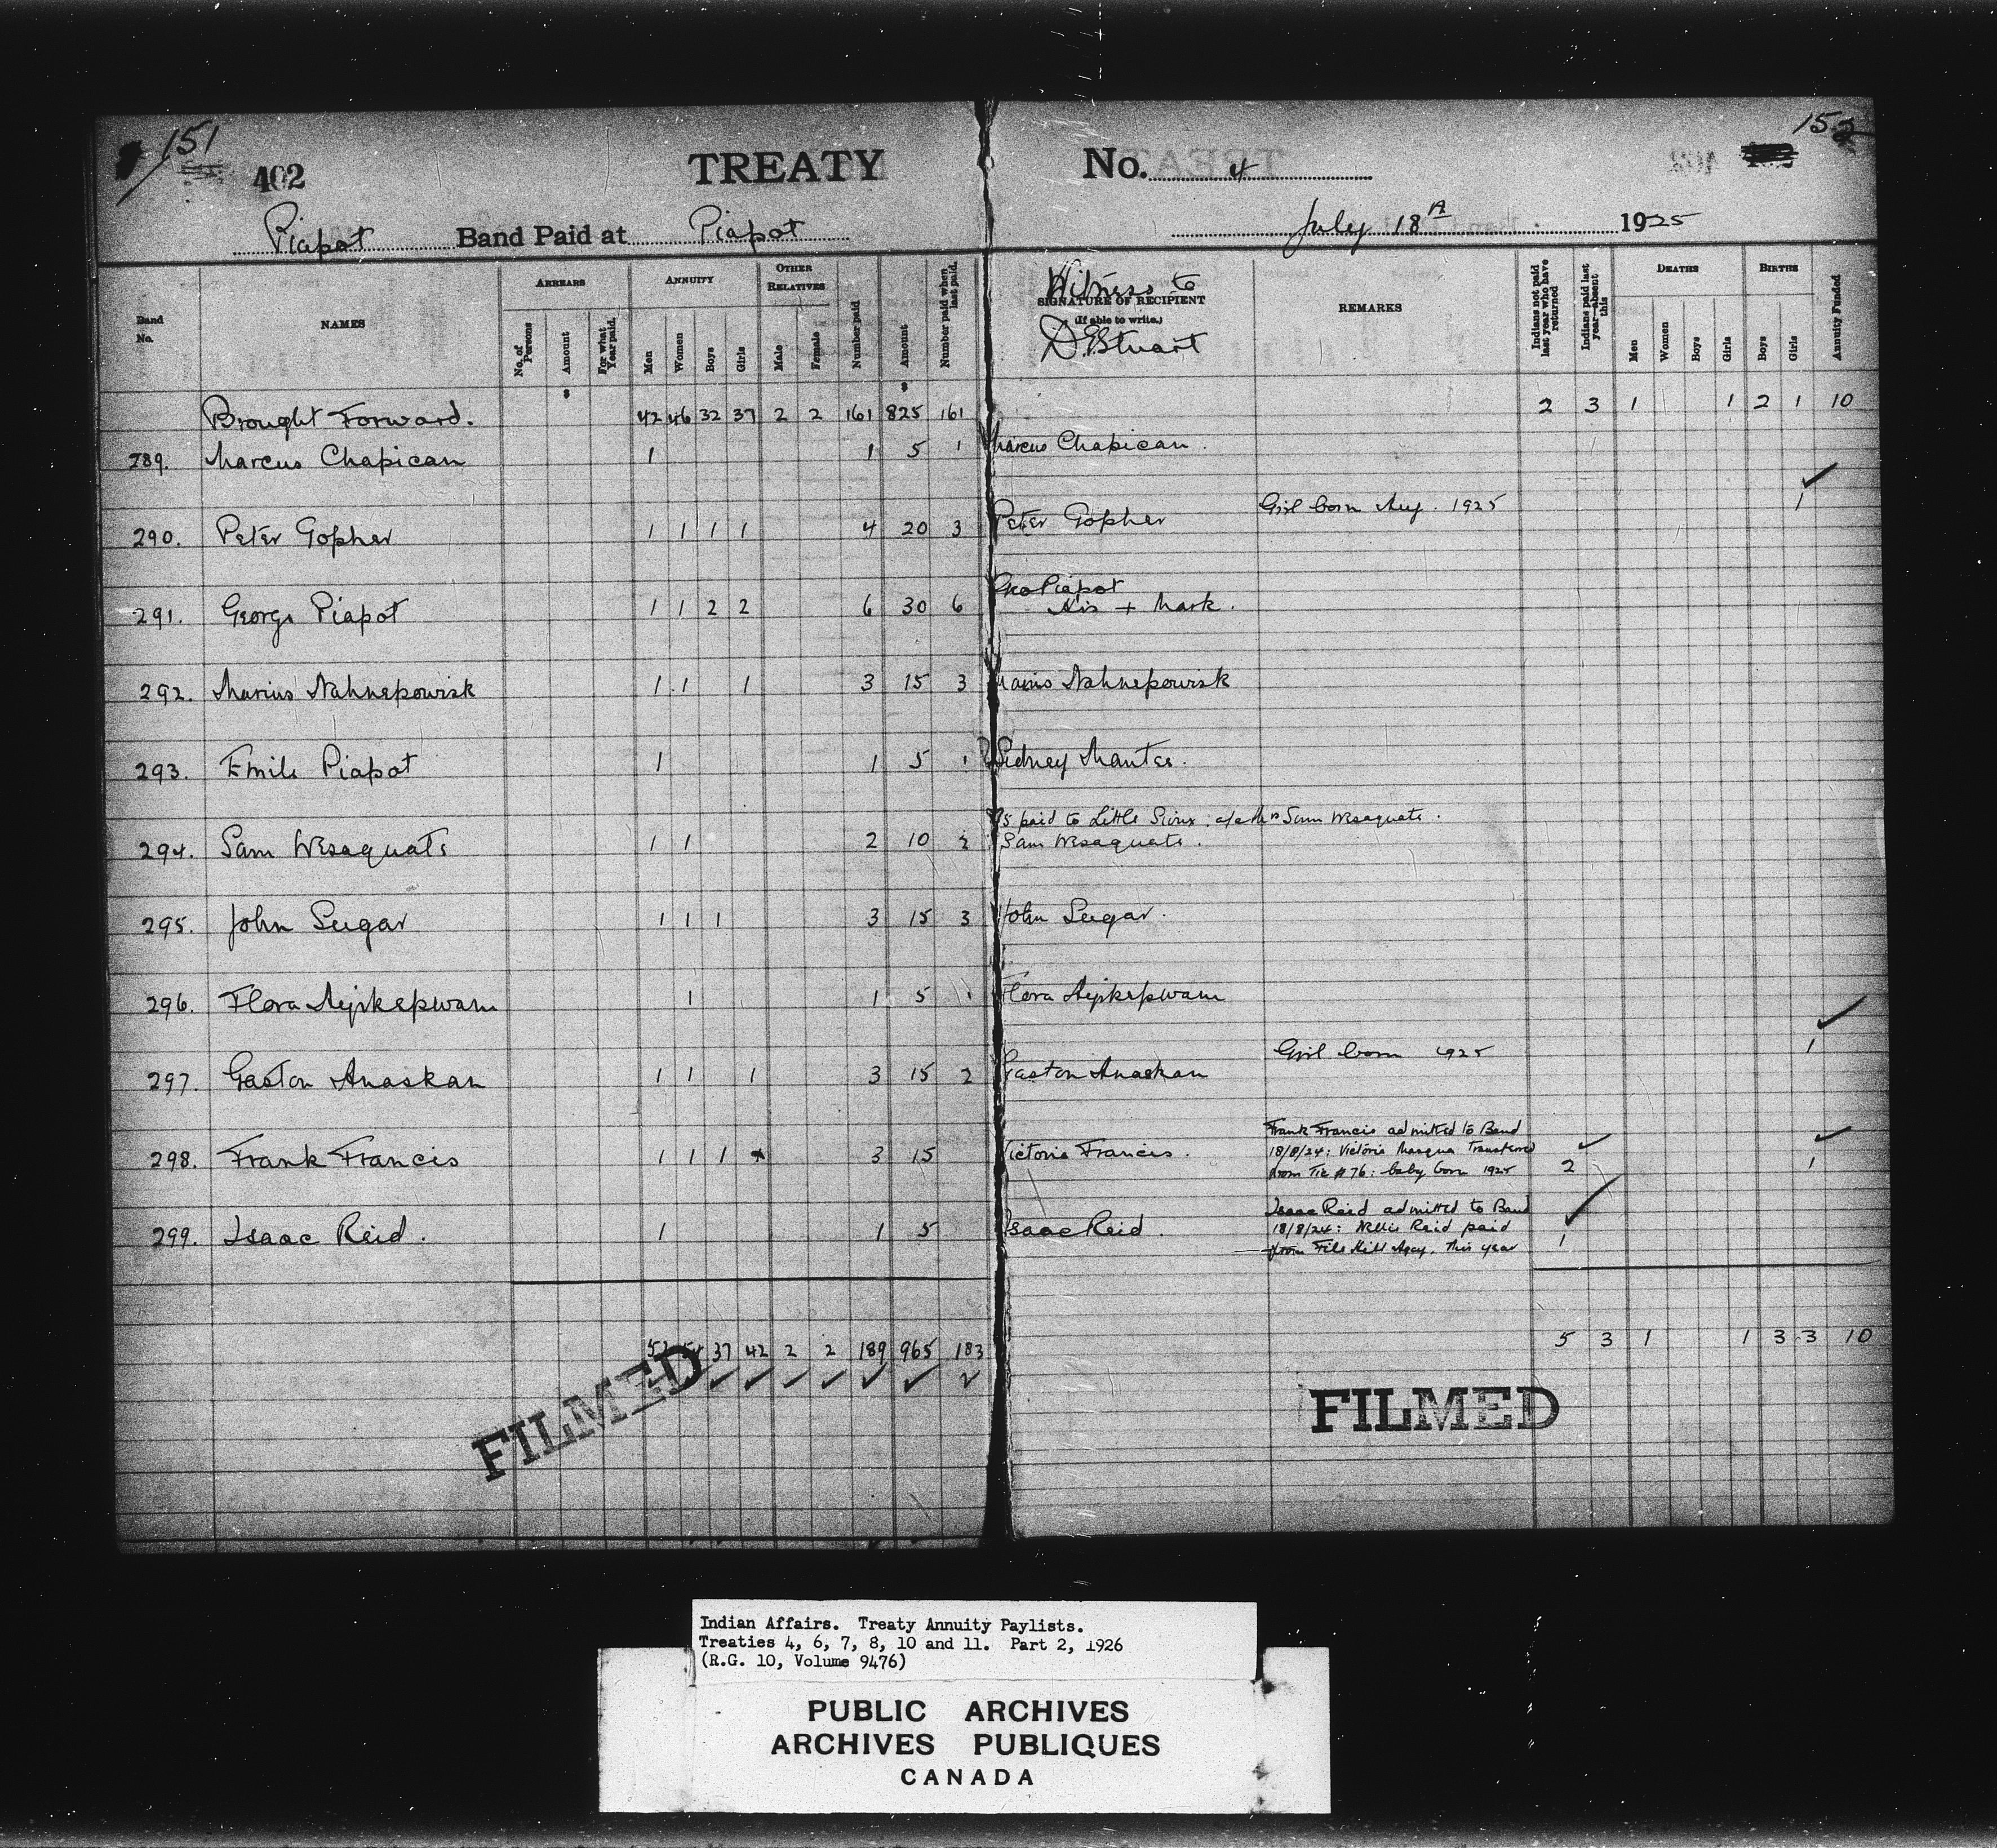 151
402
TREATY No. 4
152
Piapot Band Paid at Piapot July 18th 1925
Band No.
NAMES
ARREARS
No. of Persons
Amount
For what Year paid.
ANNUITY
Men
Women
Boys
Girls
OTHER RELATIVES
Male
Female
Number paid
Amount
Number paid when last paid.
Witness to
SIGNATURE OF RECIPIENT
(If able to write.)
D. Stuart
REMARKS
Indians not paid last year who have returned
Indians paid last year—absent this
DEATHS
Men
Women
Boys
Girls
BIRTHS
Boys
Girls
Annuity Funded
$ $
Brought Forward. 42 46 32 37 2 2 161 825 161 2 3 1 1 2 1 10
289. Marcus Chapican 1 1 5 1 Marcus Chapican.
290. Peter Gopher 1 1 1 1 4 20 3 Peter Gopher Girl born Aug. 1925 1
291. George Piapot 1 1 2 2 6 30 6 Geo Piapot
His + Mark.
292. Marius Nahnepowisk 1 1 1 3 15 3 Marius Nahnepowisk
293. Emile Piapot 1 1 5 1 Sidney
$5 paid to Little Sioux. a/c Mrs Sam Wesaquate.
294. Sam Wesaquate 1 1 2 10 2 Sam Wesaquate.
295. John Sugar 1 1 1 3 15 3 John Sugar.
296. Flora 1 1 5 1 Flora
Girl born 1925 1
297. Gaston Anaskan 1 1 1 3 15 2 Gaston Anaskan
Frank Francis admitted to Band
298. Frank Francis 1 1 1 3 15 Victoria Francis. 18/8/24: Victoria Masqua Transferred
from Tic # 76: baby born 1925 2 1
Isaac Reid admitted to Band
299. Isaac Reid. 1 1 5 Isaac Reid. 18/8/24: Nellie Reid paid
from File Hill Agcy. this year 1
37 42 2 2 189 965 183 5 3 1 1 3 3 10
FILMED
FILMED
Indian Affairs. Treaty Annuity Paylists.
Treaties 4, 6, 7, 8, 10 and 11. Part 2, 1926
(R.G. 10, Volume 9476)
PUBLIC ARCHIVES
ARCHIVES PUBLIQUES
CANADA